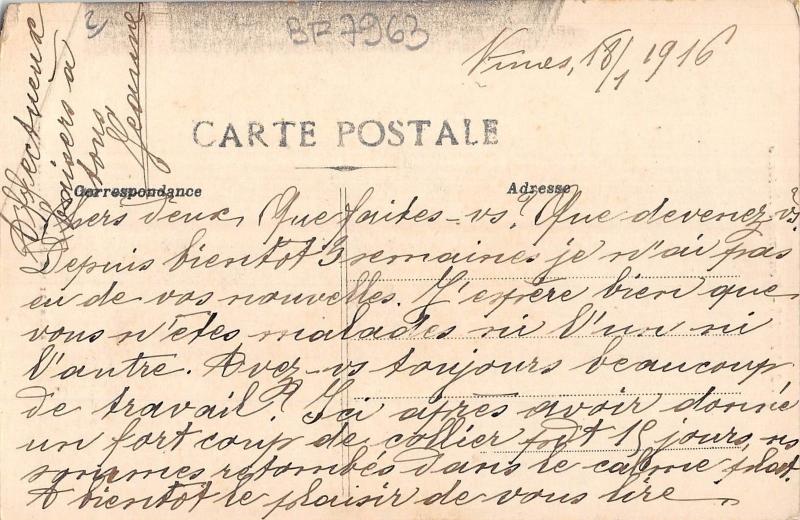 BF 7963
Nimes, 18/1 1916
CARTE POSTALE
Correspondance
Adresse
Chers deux, Que faites-vs? Que devenez-vs?
Depuis bientôt 3 semaines je n'ai pas
eu de vos nouvelles. J'espère bien que
vous n'êtes malades ni l'un ni
l'autre. Avez-vs toujours beaucoup
de travail? Ici après avoir donné
un fort coup de collier pdt 15 jours, ns
sommes retombés dans le calme plat.
A bientôt le plaisir de vous lire
Affectueux
baisers à
tous
Jeanne